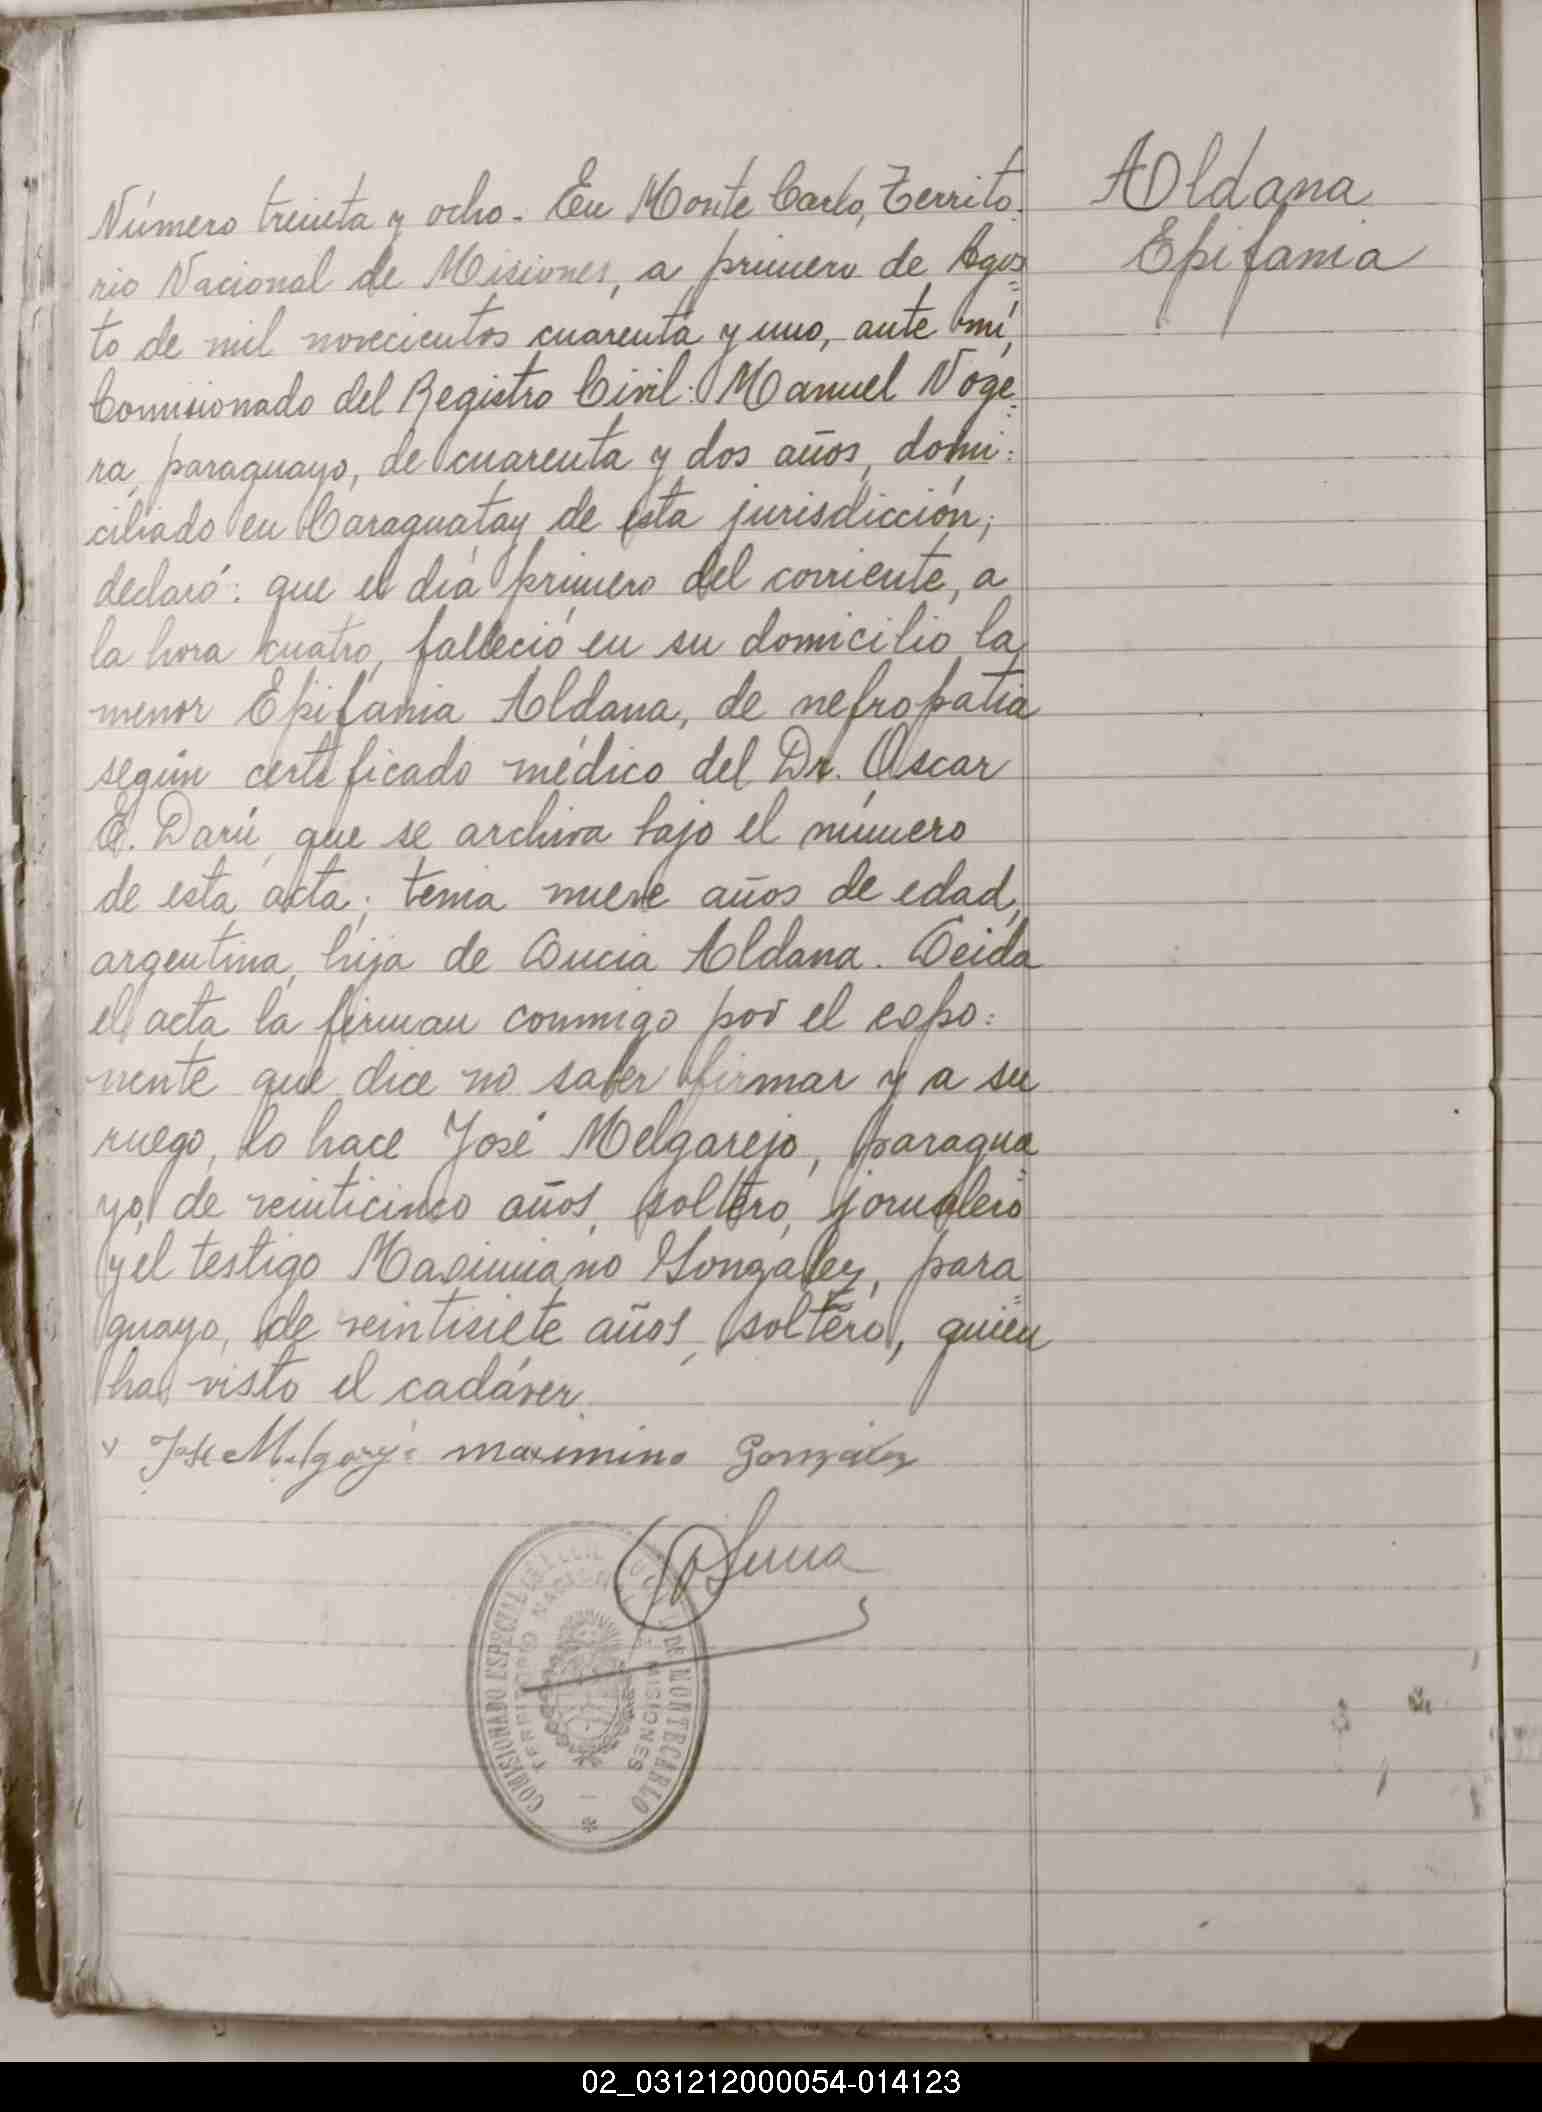 Aldana
Epifania
Número treinta y ocho. En Monte Carlo, Territo-
rio Nacional de Misiones, a primero de Agos=
to de mil novecientos cuarenta y uno, ante mí,
Comisionado del Registro Civil: Manuel Noge=
ra, paraguayo, de cuarenta y dos años, domi=
ciliado en Caraguatay de esta jurisdicción;
declaró: que el día primero del corriente, a
la hora cuatro, falleció en su domicilio la
menor Epifania Aldana, de nefropatia
según certificado médico del Dr. Oscar
E. Darú, que se archiva bajo el número
de esta acta; tenia nueve años de edad,
argentina, hija de Lucia Aldana. Leida
el acta la firman conmigo por el expo=
nente que dice no saber firmar y a su
ruego, lo hace José Melgarejo, paragua=
yo, de veinticinco años, soltero, jornalero
y el testigo Maximiano González, para=
guayo, de veintisiete años, soltero, quien
ha visto el cadáver.
José Melgarejo maximino Gonzalez
COMISIONADO ESPECIAL DE MONTECARLO
TERRITORIO NACIONAL MISIONES
02_031212000054-014123